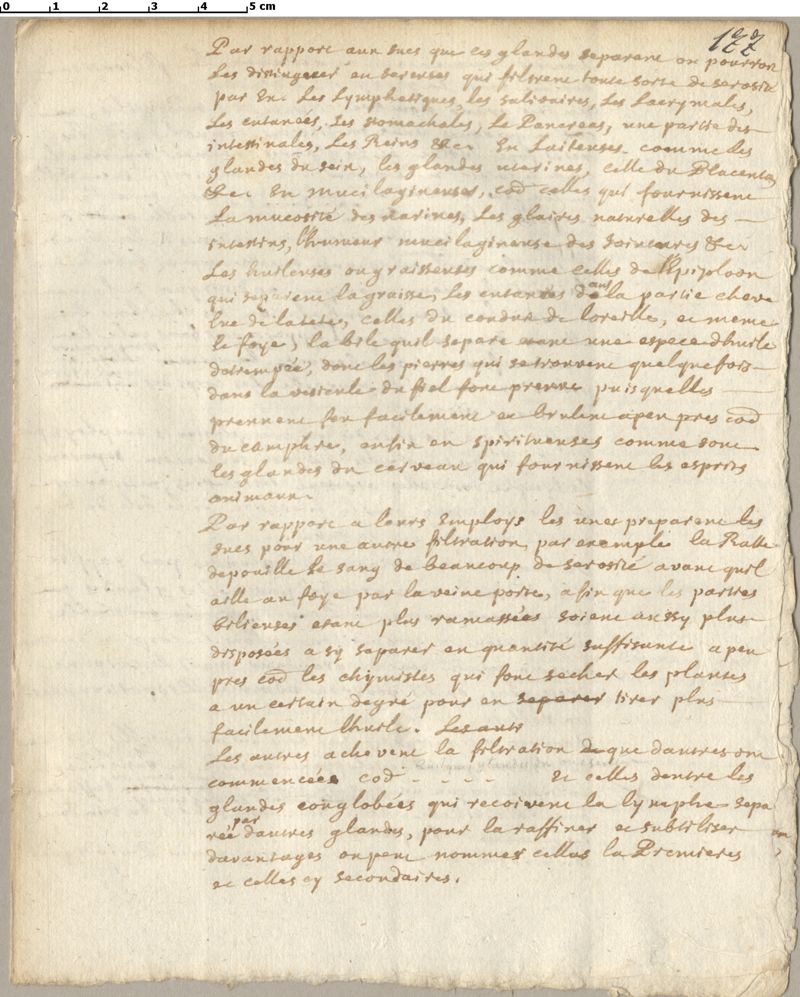 0 1 2 3 4 5 cm
177
Par rapport aux sucs que ces glandes separent on pourroit
Les distinguer en sereuses qui filtrent toute sorte de serosité
par Ex. Les Lymphatiques, les salivaires, Les Lacrymales,
Les cutanées, Les stomachales, Le Pancreas, une partie des
intestinales, Les Reins &c. En Laiteuses comme les
glandes du sein, les glandes uterines, celle du Placenta
&c. En mucilagineuses, coe celles qui fournissent
La mucosité des narines, Les glaires naturelles des
intestins, l'humeur mucilagineuse des jointures &c.
Les huileuses ou graisseuses comme celles de l'Epiploon
qui separent la graisse, Les cutanées dans la partie cheve
lue de la tete, celles du conduit de loreille, et meme
Le foye, la bile quil separe etant une espece d'huile
detrempée, dont les pierres qui se trouvent quelquefois
dans la vesicule du fiel font preuve puisquelles
prennent feu facilement et brulent a peu pres coe
du camphre, enfin en spiritueuses comme sont
les glandes du cerveau qui fournissent les esprits
animaux.
Par rapport a leurs Employs les unes preparent les
sucs pour une autre filtration, par exemple la Ratte
depouille Le sang de beaucoup de serosité avant quil
aille au foye par la veine porte, afin que les parties
bilieuses etant plus ramassées soient aussy plus
disposées a sy separer en quantité suffisante a peu
pres coe les chymistes qui font secher les plantes
a un certain degré pour en separer tirer plus
facilement lhuile. Les autr
Les autres achevent la filtration de que dautres ont
commencée coe - - - - Et celles dentre les
glandes conglobées qui recoivent la lymphe sepa
rée par dautres glandes, pour la raffiner et subtiliser
davantages on peut nommer celles la Premieres
et celles cy secondaires.